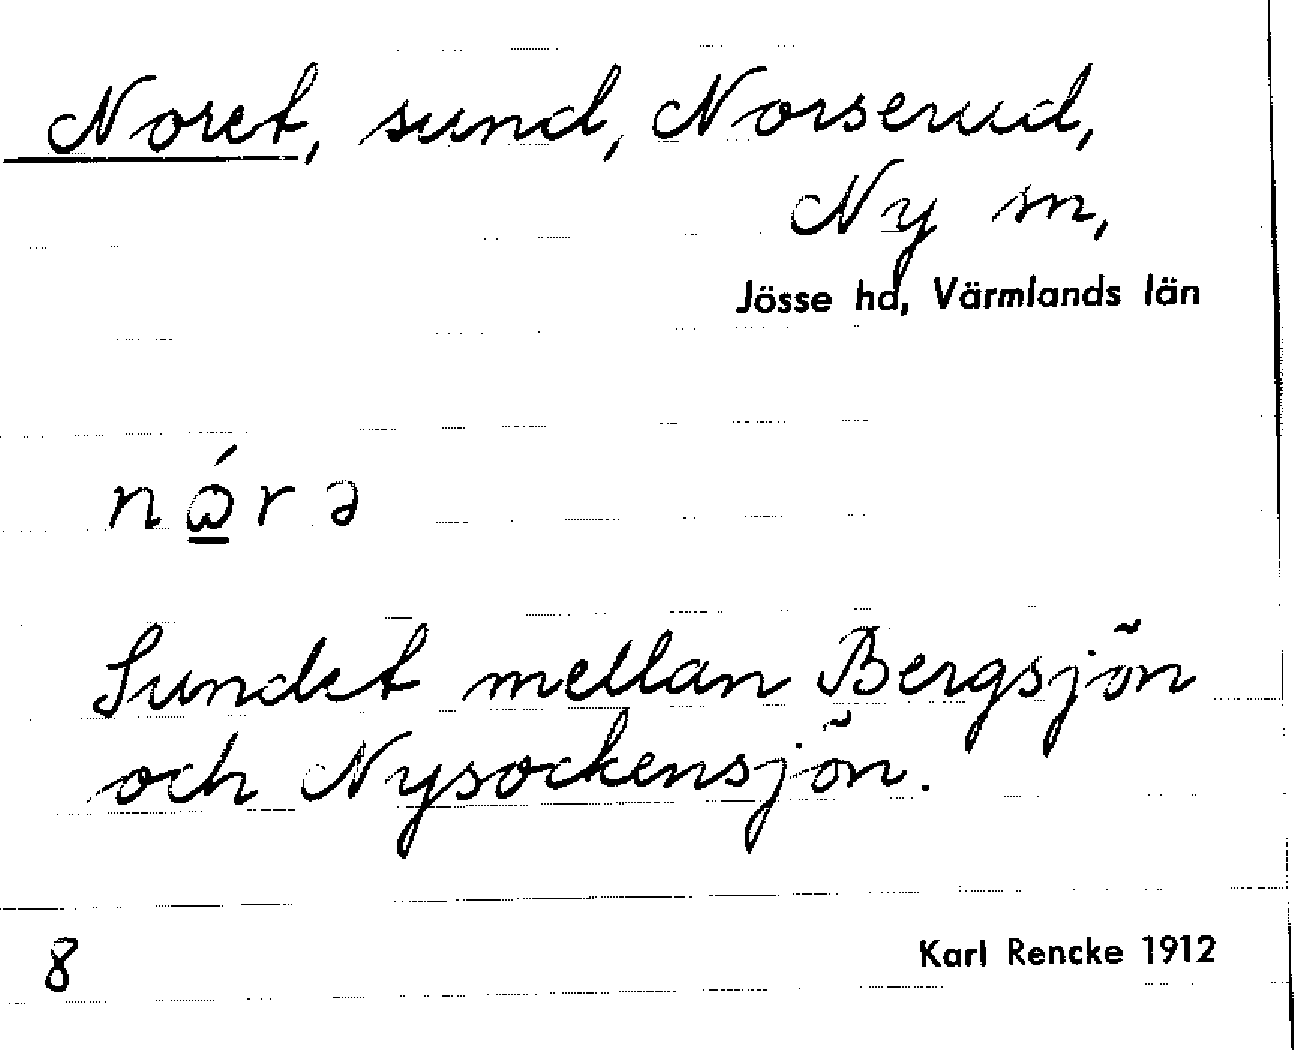 Noret, sund, Norserud,
Ny sn,
Jösse hd, Värmlands län
nώ̲rə
Sundet mellan Bergsjön
och Nysockensjön.
8
Karl Rencke 1912